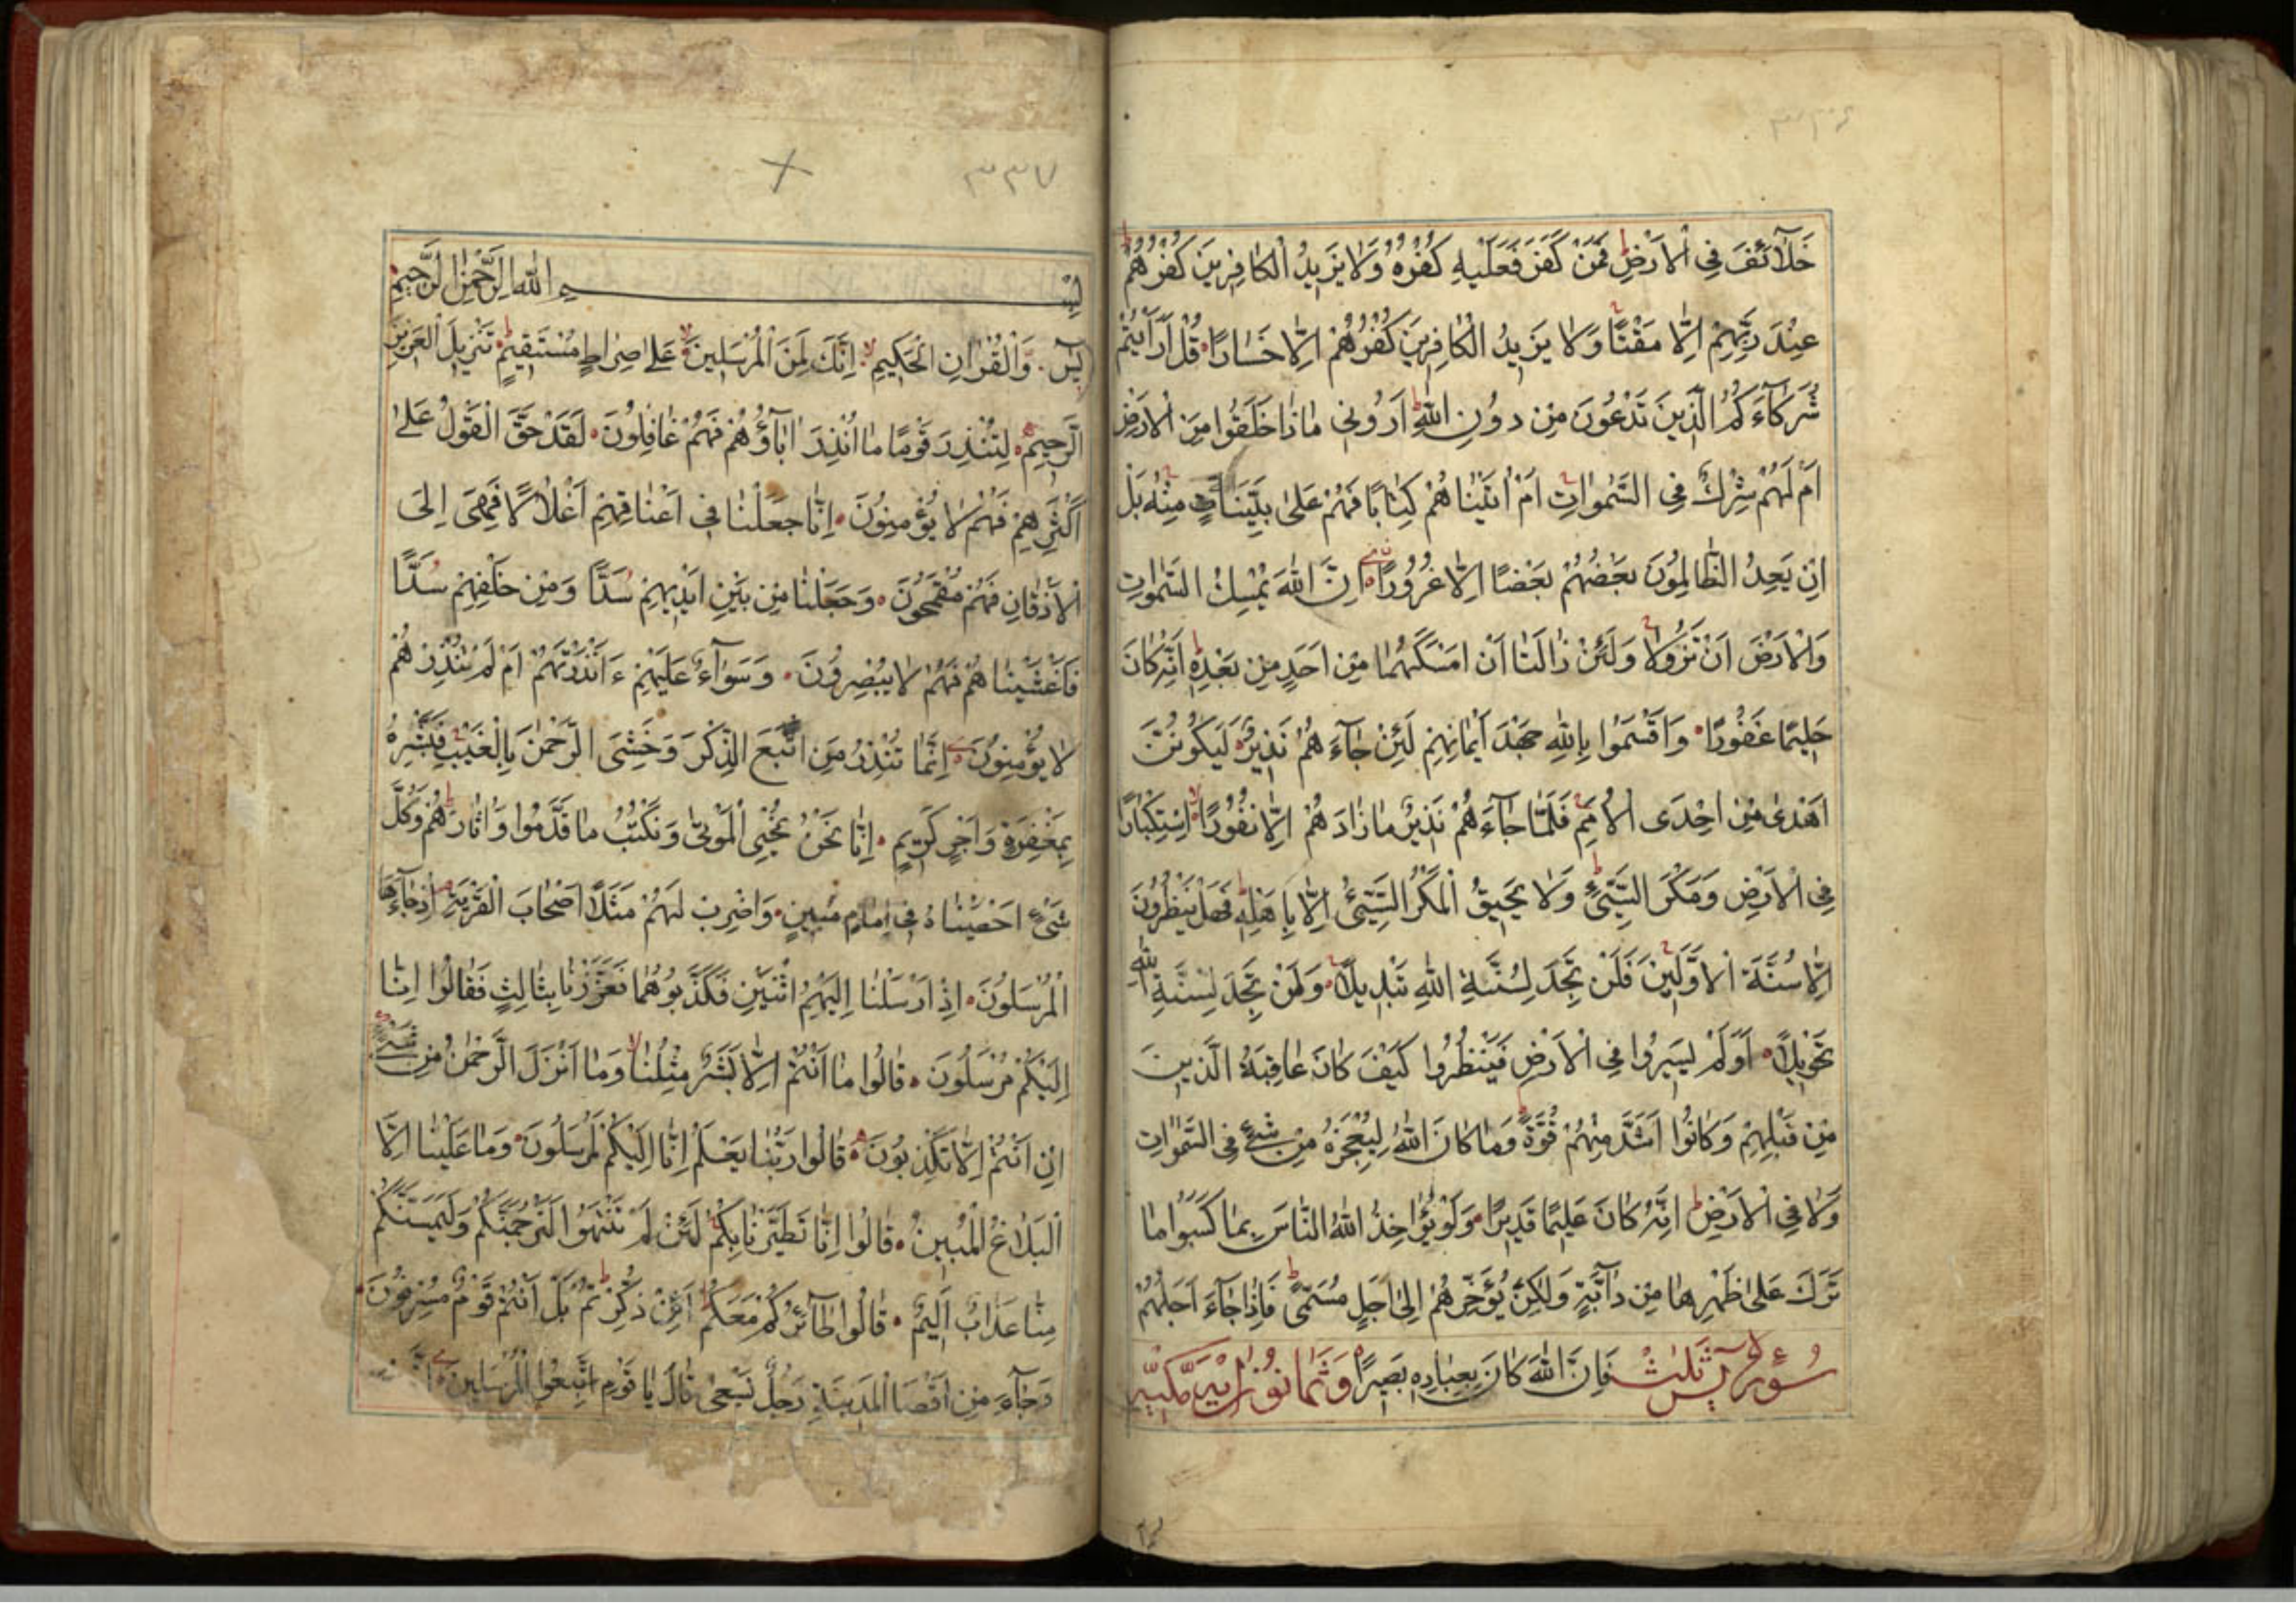 ٣٣٦
خَلَآئِفَ فِى الْاَرْضِ فَمَنْ كَفَرَ فَعَلَيْهِ كُفْرُهُ وَلَا يَزِيدُ الْكَافِرِينَ كُفْرُهُمْ
عِنْدَ رَبِّهِمْ اِلَّا مَقْتًا وَلَا يَزِيدُ الْكَافِرِينَ كُفْرُهُمْ اِلَّا خَسَارًا قُلْ اَرَاَيْتُمْ
شُرَكَآءَكُمُ الَّذِينَ تَدْعُونَ مِنْ دُونِ اللّٰهِ اَرُونِى مَاذَا خَلَقُوا مِنَ الْاَرْضِ
اَمْ لَهُمْ شِرْكٌ فِى السَّمٰوَاتِ اَمْ اٰتَيْنَاهُمْ كِتَابًا فَهُمْ عَلٰى بَيِّنَاتٍ مِنْهُ بَلْ
اِنْ يَعِدُ الظَّالِمُونَ بَعْضُهُمْ بَعْضًا اِلَّا غُرُورًا اِنَّ اللّٰهَ يُمْسِكُ السَّمٰوَاتِ
وَالْاَرْضَ اَنْ تَزُولَا وَلَئِنْ زَالَتَا اَنْ اَمْسَكَهُمَا مِنْ اَحَدٍ مِنْ بَعْدِهِ اِنَّهُ كَانَ
حَلِيمًا غَفُورًا وَاَقْسَمُوا بِاللّٰهِ جَهْدَ اَيْمَانِهِمْ لَئِنْ جَآءَهُمْ نَذِيرٌ لَيَكُونُنَّ
اَهْدٰى مِنْ اِحْدَى الْاُمَمِ فَلَمَّا جَآءَهُمْ نَذِيرٌ مَا زَادَهُمْ اِلَّا نُفُورًا اِسْتِكْبَارًا
فِى الْاَرْضِ وَمَكْرَ السَّيِّئِ وَلَا يَحِيقُ الْمَكْرُ السَّيِّئُ اِلَّا بِاَهْلِهِ فَهَلْ يَنْظُرُونَ
اِلَّا سُنَّةَ الْاَوَّلِينَ فَلَنْ تَجِدَ لِسُنَّةِ اللّٰهِ تَبْدِيلًا وَلَنْ تَجِدَ لِسُنَّةِ اللّٰهِ
تَحْوِيلًا اَوَلَمْ يَسِيرُوا فِى الْاَرْضِ فَيَنْظُرُوا كَيْفَ كَانَ عَاقِبَةُ الَّذِينَ
مِنْ قَبْلِهِمْ وَكَانُوا اَشَدَّ مِنْهُمْ قُوَّةً وَمَا كَانَ اللّٰهُ لِيُعْجِزَهُ مِنْ شَىْءٍ فِى السَّمٰوَاتِ
وَلَا فِى الْاَرْضِ اِنَّهُ كَانَ عَلِيمًا قَدِيرًا وَلَوْ يُؤَاخِذُ اللّٰهُ النَّاسَ بِمَا كَسَبُوا مَا
تَرَكَ عَلٰى ظَهْرِهَا مِنْ دَآبَّةٍ وَلٰكِنْ يُؤَخِّرُهُمْ اِلٰى اَجَلٍ مُسَمًّى فَاِذَا جَآءَ اَجَلُهُمْ
سُورَةُ يٰسٓ ثَلٰثٌ فَاِنَّ اللّٰهَ كَانَ بِعِبَادِهِ بَصِيرًا وَثَمَانُونَ اٰيَةً مَكِّيَّةٌ
٣٣٧
بِسْمِ اللّٰهِ الرَّحْمٰنِ الرَّحِيمِ
يٰسٓ وَالْقُرْاٰنِ الْحَكِيمِ اِنَّكَ لَمِنَ الْمُرْسَلِينَ عَلٰى صِرَاطٍ مُسْتَقِيمٍ تَنْزِيلَ الْعَزِيزِ
الرَّحِيمِ لِتُنْذِرَ قَوْمًا مَا اُنْذِرَ اٰبَآؤُهُمْ فَهُمْ غَافِلُونَ لَقَدْ حَقَّ الْقَوْلُ عَلٰى
اَكْثَرِهِمْ فَهُمْ لَا يُؤْمِنُونَ اِنَّا جَعَلْنَا فِى اَعْنَاقِهِمْ اَغْلَالًا فَهِىَ اِلَى
الْاَذْقَانِ فَهُمْ مُقْمَحُونَ وَجَعَلْنَا مِنْ بَيْنِ اَيْدِيهِمْ سُدًّا وَمِنْ خَلْفِهِمْ سُدًّا
فَاَغْشَيْنَاهُمْ فَهُمْ لَا يُبْصِرُونَ وَسَوَآءٌ عَلَيْهِمْ ءَاَنْذَرْتَهُمْ اَمْ لَمْ تُنْذِرْهُمْ
لَا يُؤْمِنُونَ اِنَّمَا تُنْذِرُ مَنِ اتَّبَعَ الذِّكْرَ وَخَشِىَ الرَّحْمٰنَ بِالْغَيْبِ فَبَشِّرْهُ
بِمَغْفِرَةٍ وَاَجْرٍ كَرِيمٍ اِنَّا نَحْنُ نُحْيِى الْمَوْتٰى وَنَكْتُبُ مَا قَدَّمُوا وَاٰثَارَهُمْ وَكُلَّ
شَىْءٍ اَحْصَيْنَاهُ فِى اِمَامٍ مُبِينٍ وَاضْرِبْ لَهُمْ مَثَلًا اَصْحَابَ الْقَرْيَةِ اِذْ جَآءَهَا
الْمُرْسَلُونَ اِذْ اَرْسَلْنَا اِلَيْهِمُ اثْنَيْنِ فَكَذَّبُوهُمَا فَعَزَّزْنَا بِثَالِثٍ فَقَالُوا اِنَّا
اِلَيْكُمْ مُرْسَلُونَ قَالُوا مَا اَنْتُمْ اِلَّا بَشَرٌ مِثْلُنَا وَمَا اَنْزَلَ الرَّحْمٰنُ مِنْ شَىْءٍ
اِنْ اَنْتُمْ اِلَّا تَكْذِبُونَ قَالُوا رَبُّنَا يَعْلَمُ اِنَّا اِلَيْكُمْ لَمُرْسَلُونَ وَمَا عَلَيْنَا اِلَّا
الْبَلَاغُ الْمُبِينُ قَالُوا اِنَّا تَطَيَّرْنَا بِكُمْ لَئِنْ لَمْ تَنْتَهُوا لَنَرْجُمَنَّكُمْ وَلَيَمَسَّنَّكُمْ
مِنَّا عَذَابٌ اَلِيمٌ قَالُوا طَآئِرُكُمْ مَعَكُمْ اَئِنْ ذُكِّرْتُمْ بَلْ اَنْتُمْ قَوْمٌ مُسْرِفُونَ
وَجَآءَ مِنْ اَقْصَا الْمَدِينَةِ رَجُلٌ يَسْعٰى قَالَ يَا قَوْمِ اتَّبِعُوا الْمُرْسَلِينَ